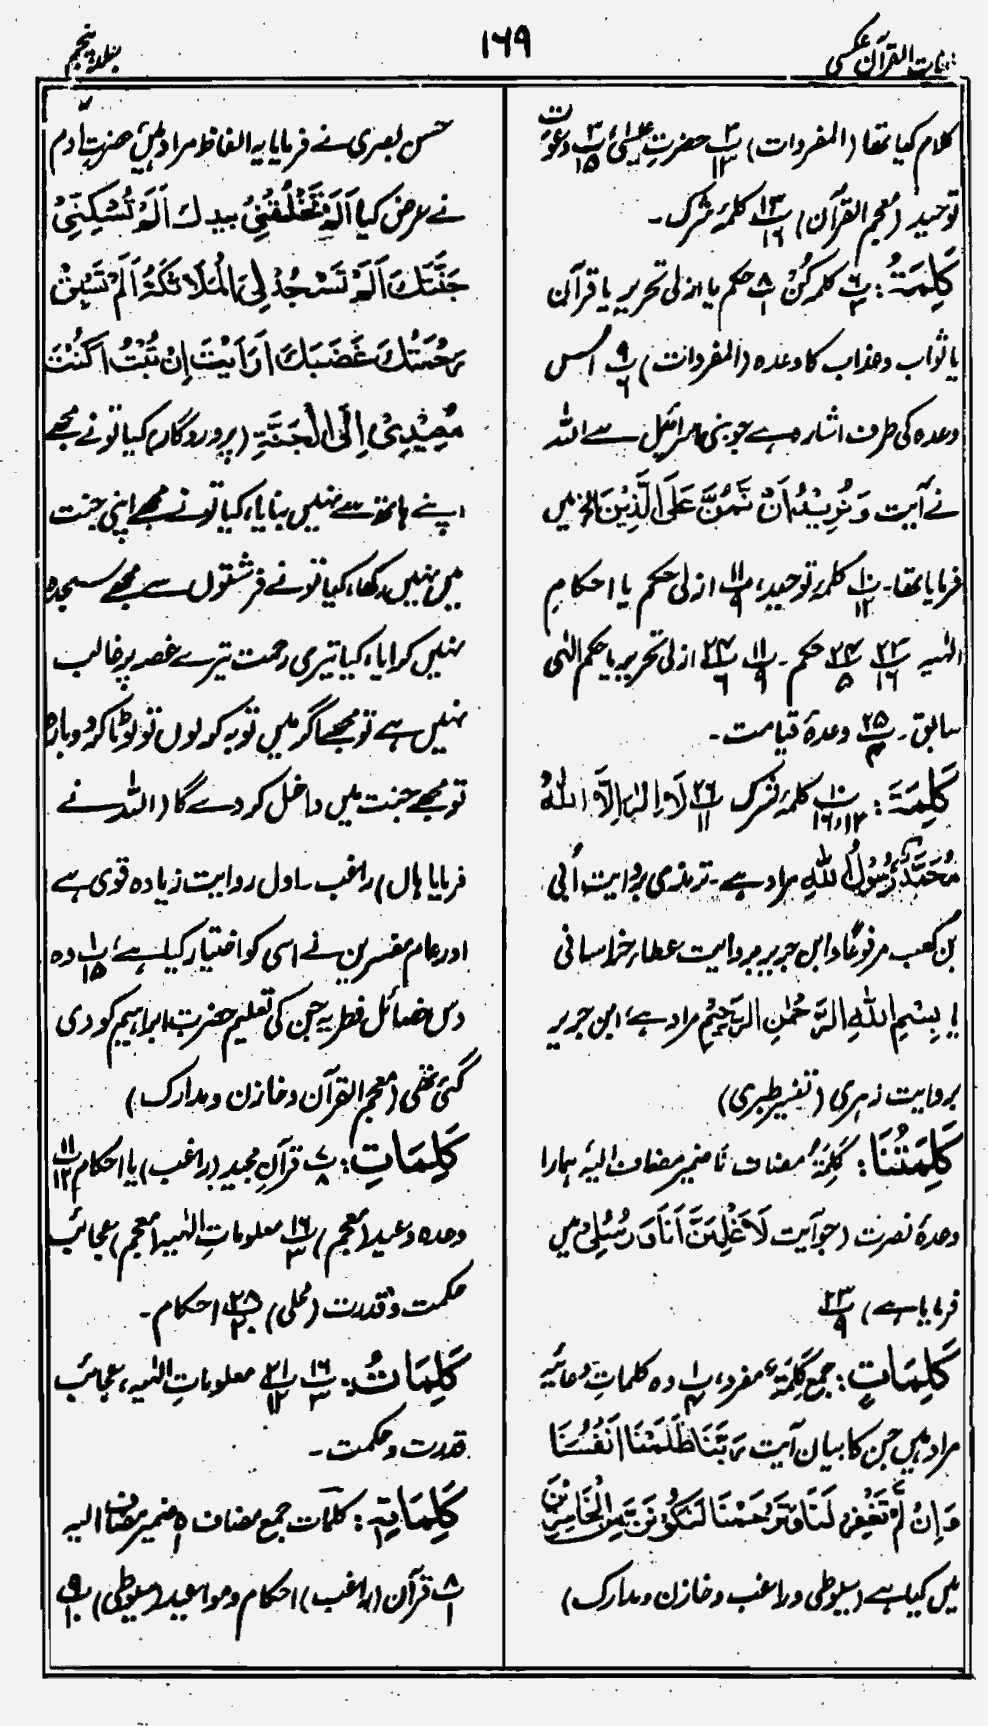 لغات القرآن عکسی
۱۶۹
جلد پنجم
کلام کیا تھا (المفردات) پ۳/۱۲ حضرت عیسیٰؑ پ۳/۱۵ دعوت
توحید (معجم القرآن) پ۱۳/۱۶ کلمۂ شرک۔
كَلِمَةُ: پ۶/۲ کلمہ کُنْ پ۸/۱ حکم یا ازلی تحریر یا قرآن
یا ثواب و عذاب کا وعدہ (المفردات) پ۹/۶ اس
وعدہ کی طرف اشارہ ہے جو بنی اسرائیل سے اللہ
نے آیت وَنُرِيْدُ اَنْ نَّمُنَّ عَلَى الَّذِيْنَ الخ میں
فرمایا تھا۔ پ۱۰/۱۲ کلمہ توحید، پ۱۱/۹ ازلی حکم یا احکامِ
الٰہیہ پ۲۳/۱۶ پ۲۴/۵ حکم۔ پ۱۱/۹ پ۲۴/۶ ازلی تحریر یا حکم الٰہی
سابق۔ پ۲۵/۴ وعدۂ قیامت۔
كَلِمَةَ: پ۱۰/۱۲،۱۶ کلمۂ شرک پ۲۶/۱۱ لَا اِلٰہَ اِلَّا اللہُ
مُحَمَّدٌ رَّسُوْلُ اللہِ مراد ہے۔ ترمذی بروایت اُبی
بن کعب مرفوعًا و ابن جریر بروایت عطاء خراسانی
یا بِسْمِ اللہِ الرَّحْمٰنِ الرَّحِيْمِ مراد ہے، ابن جریر
بروایت زہری (تفسیر طبری)
كَلِمَتُنَا: كَلِمَةُ مضاف نا ضمیر مضاف الیہ ہمارا
وعدۂ نصرت (جو آیت لَاَغْلِبَنَّ اَنَا وَرُسُلِیْ میں
فرمایا ہے) پ۲۳/۹
كَلِمَاتٍ: جمع كَلِمَةٌ مفرد، پ۱/۴ وہ کلماتِ دعائیہ
مراد ہیں جن کا بیان آیت رَبَّنَا ظَلَمْنَا اَنْفُسَنَا
وَاِنْ لَّمْ تَغْفِرْ لَنَا وَتَرْحَمْنَا لَنَكُوْنَنَّ مِنَ الْخَاسِرِيْنَ
میں کیا ہے (سیوطی و راغب و خازن و مدارک)
حسن بصری نے فرمایا یہ الفاظ مراد ہیں، حضرت آدمؑ
نے عرض کیا اَلَمْ تَخْلُقْنِیْ بِیدك اَلَمْ تُسْكِنِّیْ
جَنَّتَكَ اَلَمْ تَسْجُدْ لِیَ الْمَلَائِكَةُ اَلَمْ تَسْبِقْ
رَحْمَتُكَ غَضَبَكَ اَرَاَيْتَ اِنْ تُبْتُ اَكُنْتَ
مُعِيْدِیْ اِلَى الْجَنَّةِ (پروردگار) کیا تو نے مجھے
اپنے ہاتھ سے نہیں بنایا، کیا تو نے مجھے اپنی جنت
میں نہیں رکھا، کیا تو نے فرشتوں سے مجھے سجدہ
نہیں کرایا، کیا تیری رحمت تیرے غصہ پر غالب
نہیں ہے تو مجھے اگر میں توبہ کر لوں تو لوٹا کر دوبارہ
تو مجھے جنت میں داخل کر دے گا (اللہ نے
فرمایا ہاں) راغب۔ اول روایت زیادہ قوی ہے
اور عام مفسرین نے اسی کو اختیار کیا ہے، پ۱/۱۵ وہ
دس خصائل فطریہ جن کی تعلیم حضرت ابراہیم کو دی
گئی تھی (معجم القرآن و خازن و مدارک)
كَلِمَاتِ: پ۷/۸ قرآنِ مجید (راغب) یا احکام پ۱۱/۱۲
وعدہ وعید (معجم) پ۱۶/۳ معلوماتِ الٰہیہ (معجم) عجائب
حکمت و قدرت (محلی) پ۲۸/۲۰ احکام۔
كَلِمَاتُ: پ۱۶/۳ پ۲۱/۱۲ معلوماتِ الٰہیہ، عجائب
قدرت و حکمت۔
كَلِمَاتِہٖ: کلمات جمع مضاف ہٖ ضمیر مضاف الیہ
پ۸/۱ قرآن (راغب) احکام و مواعید (سیوطی) پ۹/۱۰